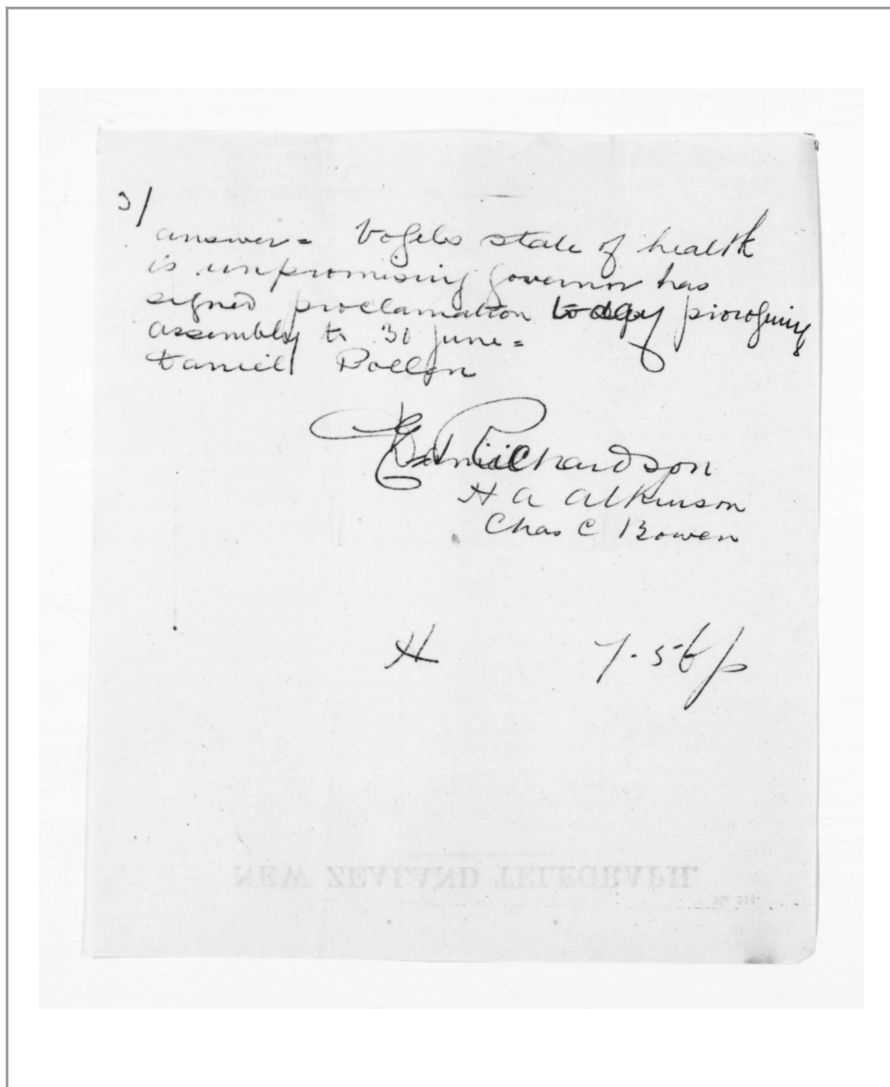 3/
answer = Vogels state of health
is unpromising governor has
signed proclamation today proroguing
assembly to 30 June =
Daniel Pollen
Richardson
H A Atkinson
Chas C Bowen
H 7.56 p
NEW ZEALAND TELEGRAPH.